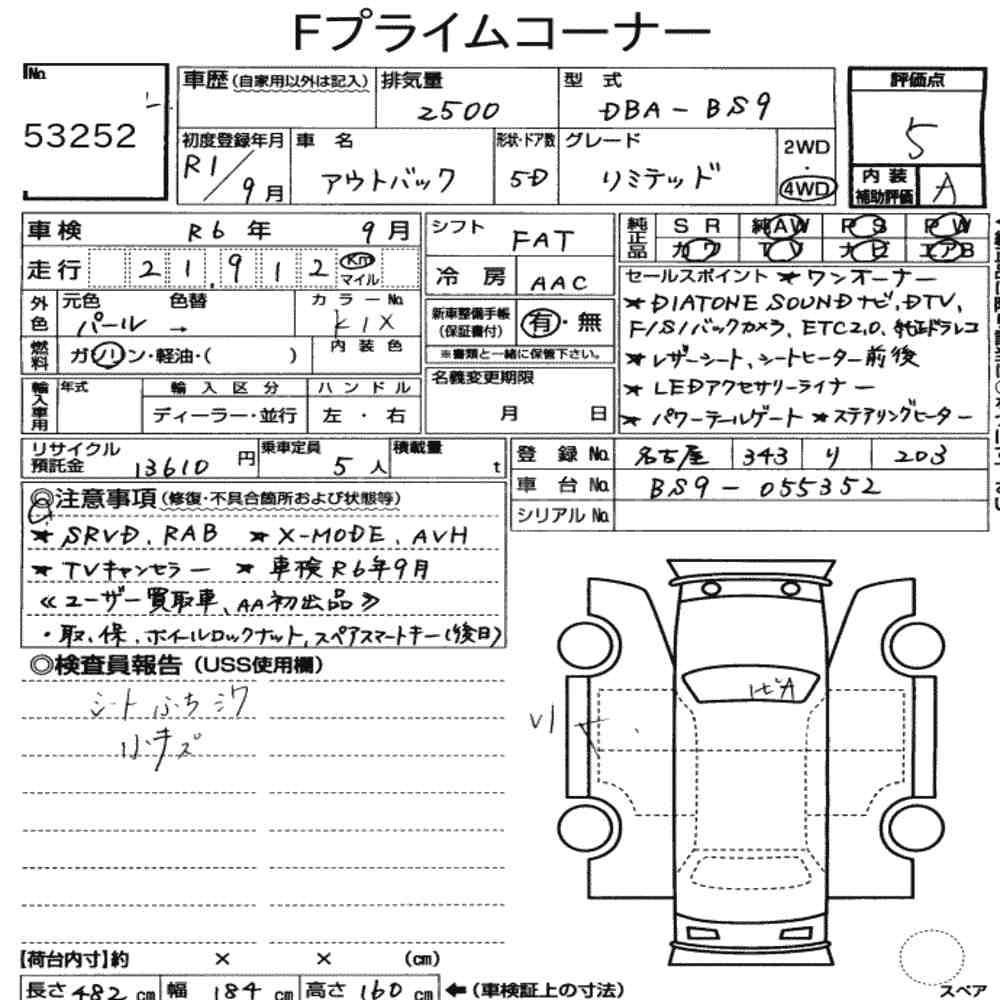 Fプライムコーナー
No.
53252
車歴(自家用以外は記入)
排気量
2500
型 式
DBA-BS9
評価点
5
初度登録年月
R1/9月
車 名
アウトバック
形状・ドア数
5D
グレード
リミテッド
2WD
・
4WD
内 装
補助評価
A
車検 R6年 9月
シフト FAT
純正品
SR 純AW PS PW
カワ TV ナビ エアB
走行 21,912 Km マイル
冷 房 AAC
セールスポイント ★ワンオーナー
★DIATONE SOUNDナビ、DTV、
F/S/バックカメラ、ETC2.0、純正ドラレコ
★レザーシート、シートヒーター前後
★LEDアクセサリーライナー
★パワーテールゲート ★ステアリングヒーター
外色 元色 色替 カラーNo.
パール → K1X
新車整備手帳
(保証書付)
有・無
※書類と一緒に保管下さい。
燃料 ガソリン・軽油・( )
内装色
名義変更期限
月 日
輸入車用
年式 輸入区分 ハンドル
ディーラー・並行 左・右
リサイクル
預託金 13610円
乗車定員
5人
積載量
t
登録No. 名古屋 343 り 203
車台No. BS9-055352
シリアルNo.
◎注意事項(修復・不具合箇所および状態等)
★SRVD、RAB ★X-MODE、AVH
★TVキャンセラー ★車検R6年9月
≪ユーザー買取車、AA初出品≫
・取、保、ホイールロックナット、スペアスマートキー(後日)
◎検査員報告(USS使用欄)
シートふちシワ
小キズ
トビA
【荷台内寸】約 × × (cm)
長さ482cm 幅184cm 高さ160cm ←(車検証上の寸法)
スペア